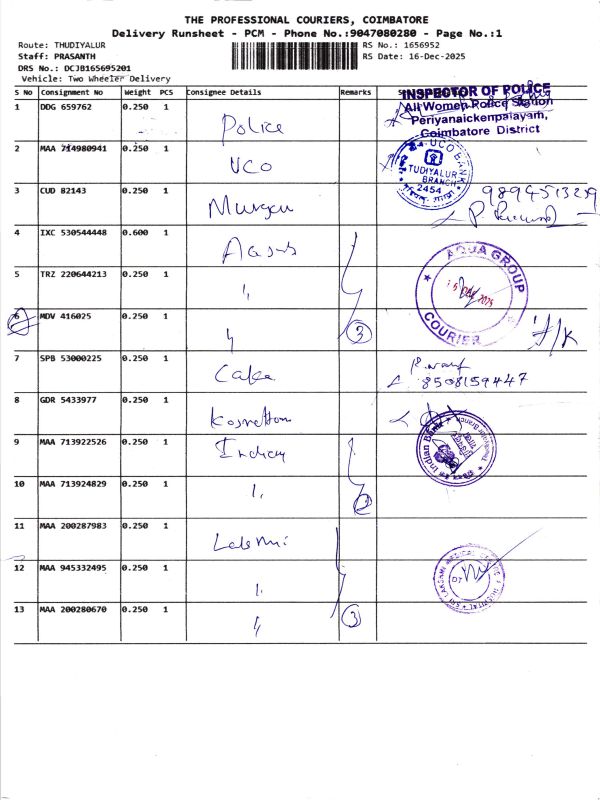 THE PROFESSIONAL COURIERS, COIMBATORE
Delivery Runsheet - PCM - Phone No.:9047080280 - Page No.:1
Route: THUDIYALUR
Staff: PRASANTH
DRS No.: DCJB165695201
Vehicle: Two Wheeler Delivery
RS No.: 1656952
RS Date: 16-Dec-2025
S No Consignment No Weight PCS Consignee Details Remarks
1 DDG 659762 0.250 1 Police
INSPECTOR OF POLICE
All Women Police Station
Periyanaickenpalayam,
Coimbatore District
2 MAA 714980941 0.250 1 UCO
UCO BANK
TUDIYALUR
BRANCH
2454
3 CUD 82143 0.250 1 Murgan
9894513259
4 IXC 530544448 0.600 1
5 TRZ 220644213 0.250 1 "
6 MDV 416025 0.250 1 " 3
AQUA GROUP
15 DEC 2025
COURIER
7 SPB 53000225 0.250 1 Cake
8508159447
8 GDR 5433977 0.250 1
9 MAA 713922526 0.250 1 Indian
Indian Bank
10 MAA 713924829 0.250 1 " 2
11 MAA 200287983 0.250 1 Lakshmi
12 MAA 945332495 0.250 1 "
SRI LAKSHMI MEDICAL CENTRE & HOSPITAL
13 MAA 200280670 0.250 1 " 3